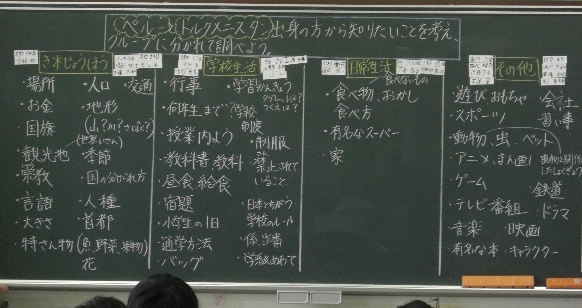 ペルーとトルクメニスタン出身の方から知りたいことを考え、
グループに分かれて調べよう。
き本じょうほう
・場所
・お金
・国旗
・観光地
・宗教
・言語
・大きさ
・特さん物(魚、野菜、果物)
花
・人口
・交通
・地形
(山?川?さばく?)
(世界いさん)
・季節
・国の分けられ方
・人種
・首都
学校生活
・行事
・何年生まで?学校
・授業内よう
・教科書、教科
・昼食、給食
・宿題
・小学生の1日
・通学方法
・バッグ
・学習かんきょう
タブレットは?
つくえは?
制度
・制服
・禁止されて
いること
・日本とちがう
学校のルール
・係、当番
日常生活
・食べないもの
・食べ物、おかし
食べ方
・有名なスーパー
・家
その他
・遊び、おもちゃ
・スポーツ
・動物、虫、ペット
・アニメ、まん画
・ゲーム
・テレビ番組
・音楽
・有名な本
・会社
・習い事
・鉄道
・ドラマ
・映画
・キャラクター